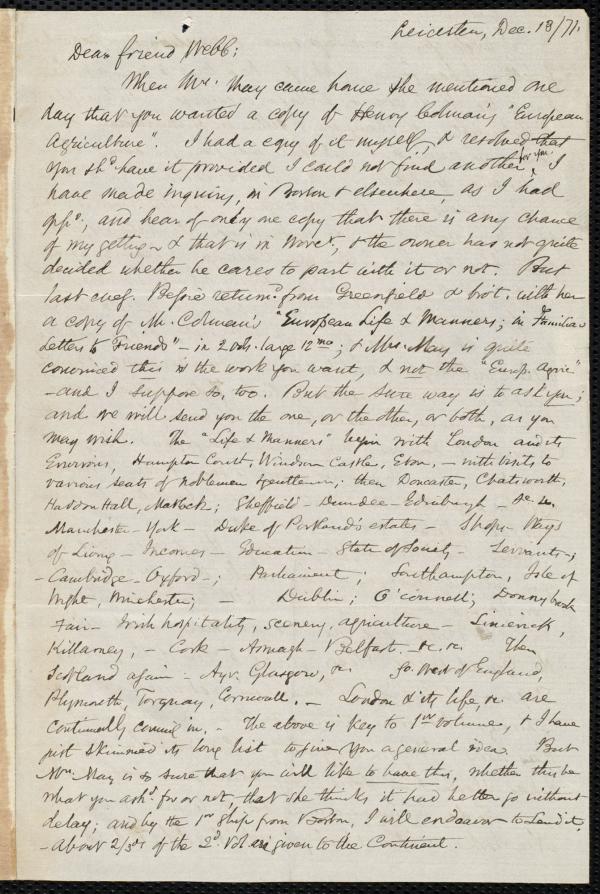 Leicester, Dec. 18/71.
Dear friend Webb;
When Mrs. May came home she mentioned one
day that you wanted a copy of Henry Colman's "European
Agriculture". I had a copy of it myself, & resolved that
you shd have it provided I could not find another for you. I
have made inquiry, in Boston & elsewhere, as I had
oppy., and hear of only one copy that there is any chance
of my getting & that is in Worcr., & the owner has not quite
decided whether he cares to part with it or not. But
last eveg. Before returnd. from Greenfield & brot. with her
a copy of Mr. Colman's "European Life & Manners; in Familiar
Letters to Friends" - in 2 vols. large 12mo; & Mrs. May is quite
convinced this is the work you want, & not the "Europ. Agric"
- and I suppose so, too. But the sure way is to ask you;
and we will send you the one, or the other, or both, as you
may wish. The "Life & Manners" begin with London and its
Environs, Hampton Court, Windsor Castle, Eton, - with visits to
various seats of noblemen & gentlemen; then Doncaster, Chatsworth,
Haddon Hall, Matlock; Sheffield - Dundee - Edinburgh - &c. &c.
Manchester - York - Duke of Portland's estates - Shops - Ways
of Living - Incomes - Education - State of Society - Servants;
- Cambridge - Oxford -; Parliament; Southampton, Isle of
Wight, Winchester; - Dublin; O'Connell; Donnybrook
Fair - Irish hospitality, scenery, agriculture - Limerick,
Killarney, - Cork - Armagh - Belfast. &c. &c. Then
Scotland again - Ayr. Glasgow, &c So. West of England,
Plymouth, Torquay, Cornwall. - London & its life, &c are
continually coming in. - The above is key to 1st volume, & I have
just skimmed its long list to give you a general idea. But
Mrs. May is so sure that you will like to have this, whether this be
what you askd. for or not, that she thinks it had better go without
delay; and by the 1st Ship from Boston, I will endeavor to send it.
- About 2/3ds of the 2d. Vol is given to the Continent.